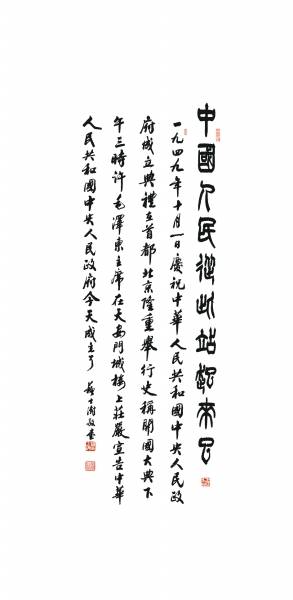 中國人民從此站起來了
一九四九年十月一日慶祝中華人民共和國中央人民政
府成立典禮在首都北京隆重舉行史稱開國大典下
午三時許毛澤東主席在天安門城樓上莊嚴宣告中華
人民共和國中央人民政府今天成立了